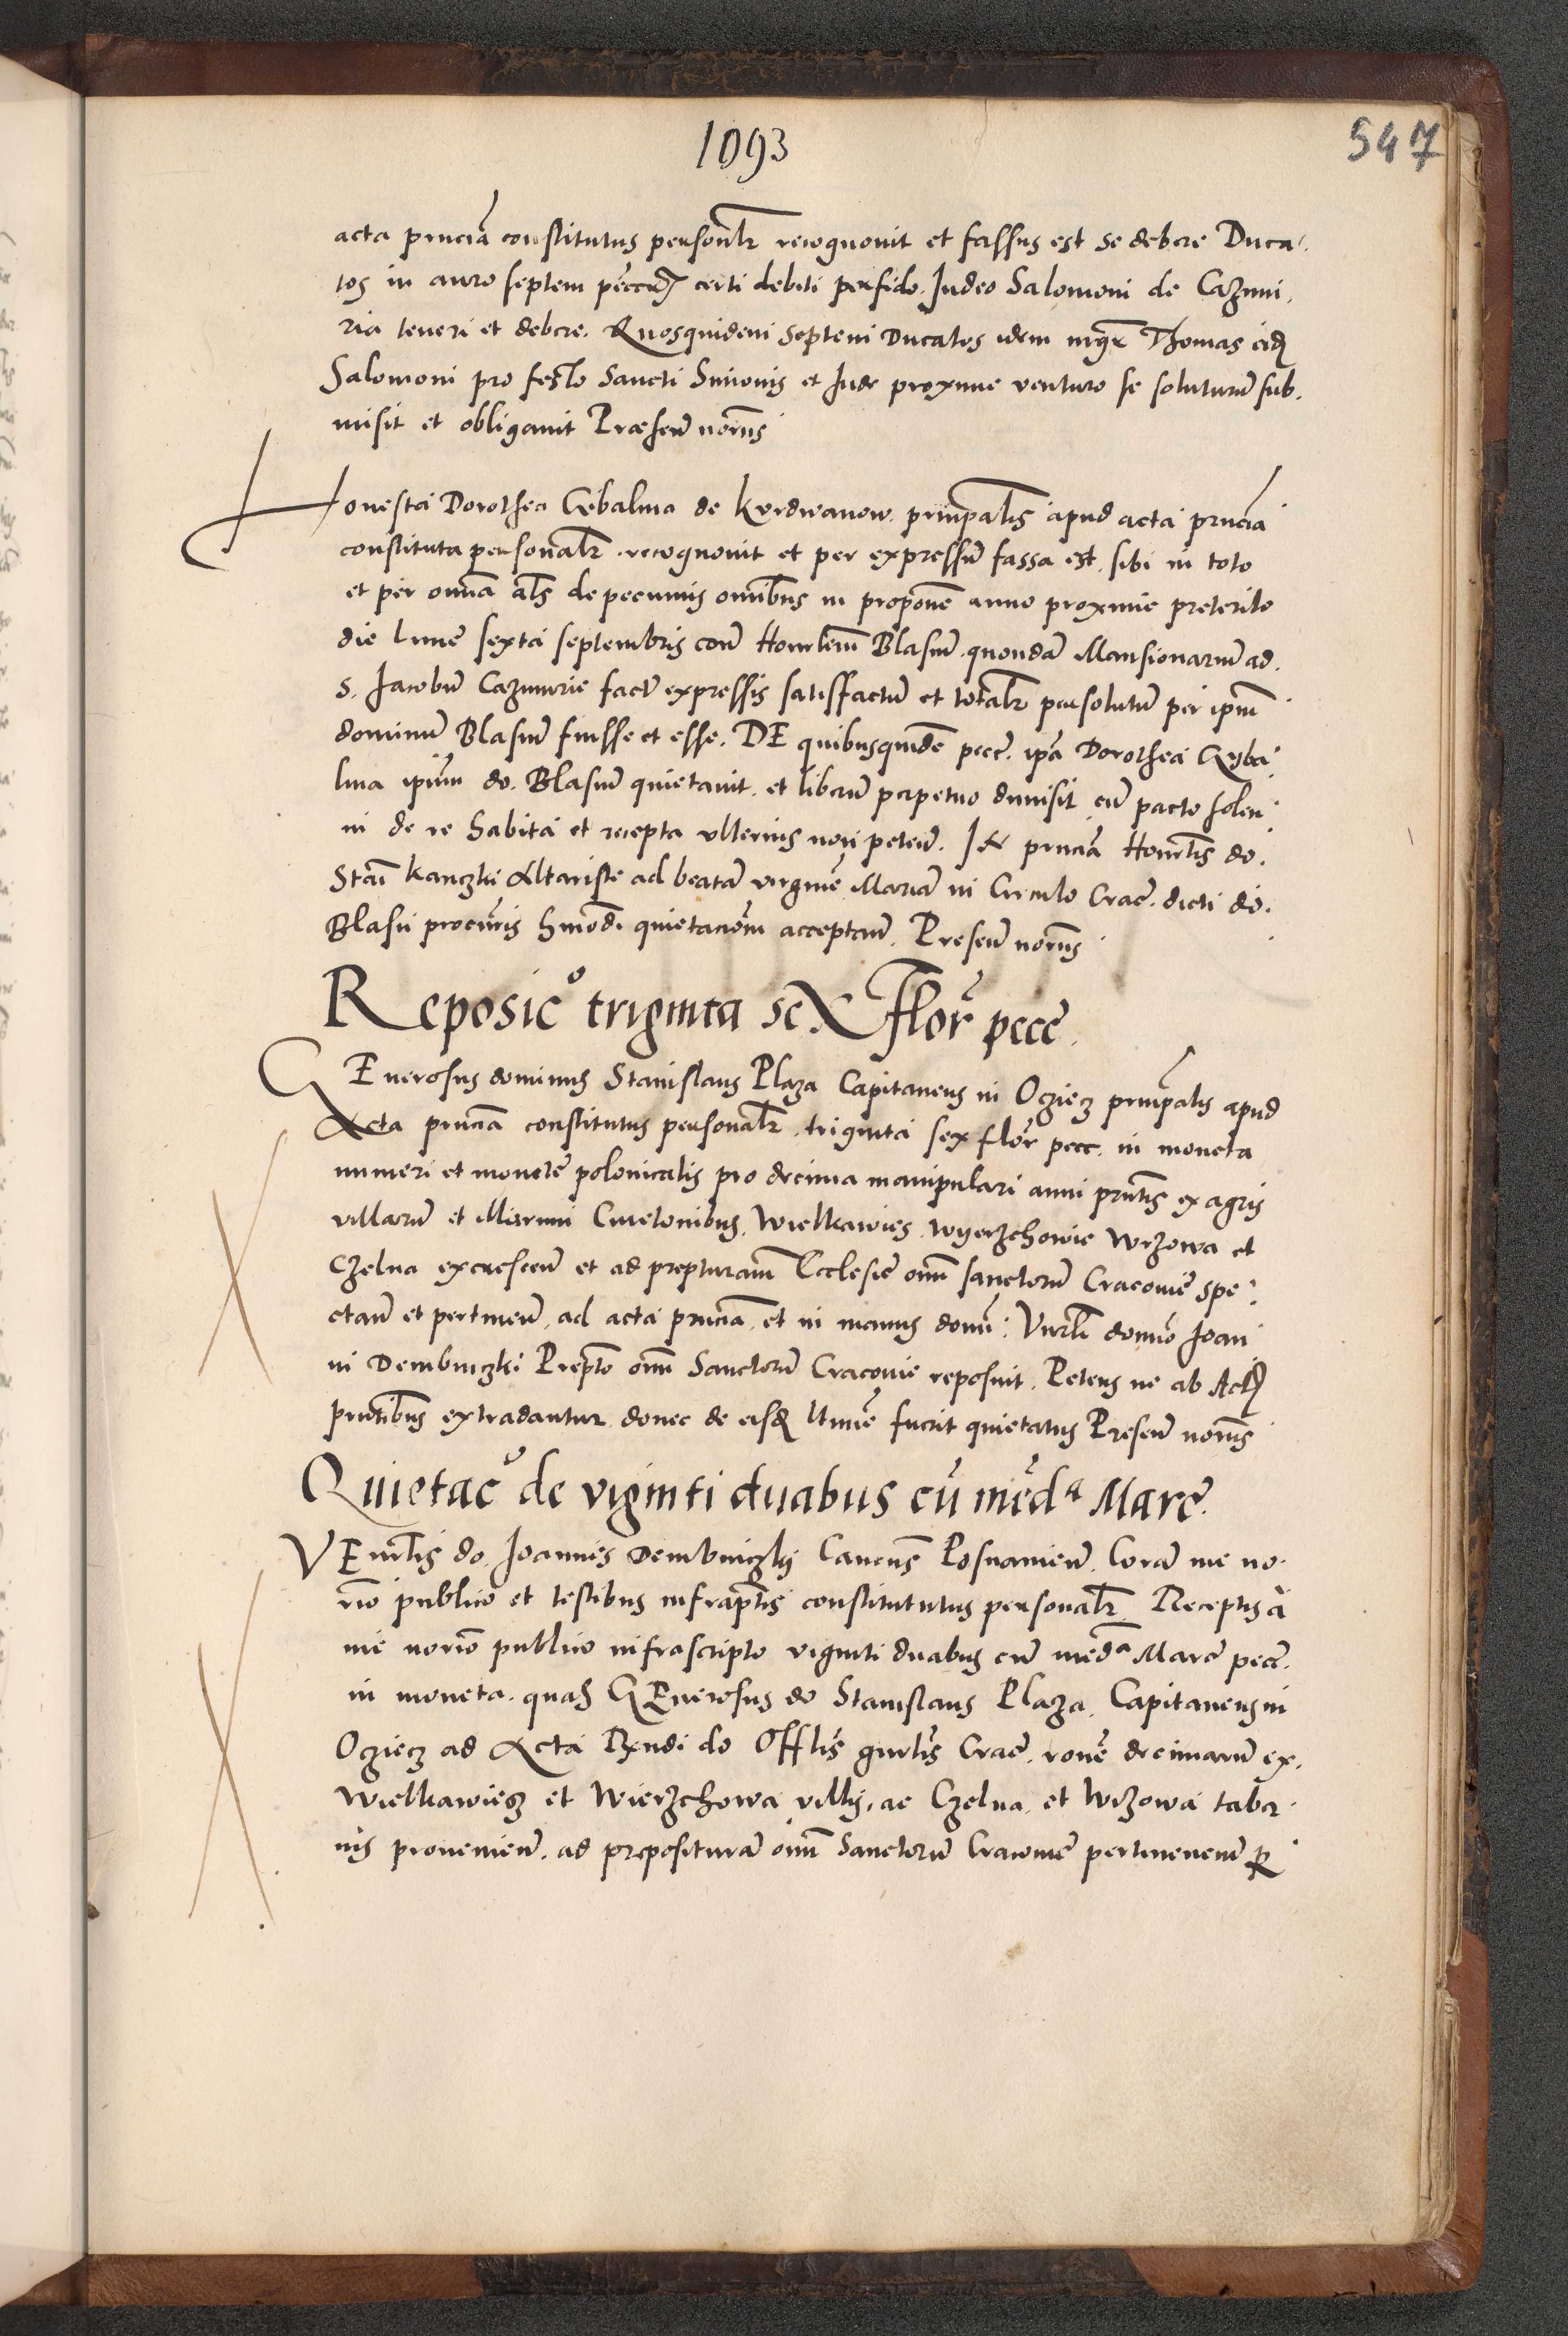 1093
547
acta pñciã constitutus personalr recognovit et fassus est se debere Duca
tos in auro septem certi debiti perfido Judeo Salomoni de Cazimi
ria teneri et debere. Quosquidem septem Ducatos idem mgr Thomas eidẽ
Salomoni pro festo Sancti Simonis et Jude proxime venturo se soluturũ sub
misit et obligavit Presen̄ norm̃s
Honesta Dorothea de Kurdwanow principalis apud acta pñcia
constituta personalr recognovit et per expressũ fassa est, sibi in toto
et per omnia als de pecuniis omnibus in propone anno proxime preterito
die lune sexta septembris contra Honorlem̃ Blasium quondã Mansionarium ad
S. Jacobũ Cazimirie expressis satisfactũ et totalr persolutũ per ipm̃
dominũ Blasium fuisse et esse. DE quibusquidẽ pecc̃. ipa Dorothea Cyba
lina ipsum do. Blasium quietavit et liberũ perpetuo dimisit, cũ pacto solen
ni de re habita et recepta ulterius non peten̄. In pñcia Honorlis do.
Stai Kanczki Altariste ad beatã virginẽ Mariã in Circulo Crac̃. dicti do.
Blasii procuris hmõdi quietacioem acceptan̄. Presen̄ norm̃s
Reposicõ triginta seX florẽ pecc̃
GEnerosus dominus Stanislaus Plaza Capitaneus in Ocziecz principalis apud
Acta pñcia constitutus personalr triginta sex flor̃ pecc̃. in moneta
numeri et monetẽ polonicalis pro decima manipulari anni pñtis ex agris
villarũ et illarum Cmetonibus, Wielkawies, Wyerzchowie Wrzowa et
Czelna excrescen̄ et ad prepturam Ecclesie om̃ sanctorũ Cracovie spe
ctan̄ et pertinen̄, ad acta pñcia et in manus domi: Vnrli domõ Joan
ni Dembinczki Prepto om̃ Sanctorũ Cracovie reposuit. Petens ne ab Actis
pñtibus extradantur donec de eisdẽ ltimẽ fuerit quietatus Presen̄ norm̃s
Quietacõ de viginti duabus cũ medª Marc̃.
VEnrlis do. Joannes Dembinczky Canc̃us Posnanien̄. Corã me no
rio publico et testibus infraptis constitututus personalr Receptis a
me norio publico infrascripto viginti duabus cum medª Marc̃ pecc̃.
in moneta. quas GEnerosus do Stanislaus Plaza, Capitaneus in
Oczecz ad Acta Rxndi do Officlis gnrlis Crac̃. ronẽ decimarũ ex
Wielkawiesz et Wierzchowa villis, ac Czelna et Wrzowa taber
nis provenien̄. ad preposituram om̃ Sanctorũ Cracovie pertinenciũ